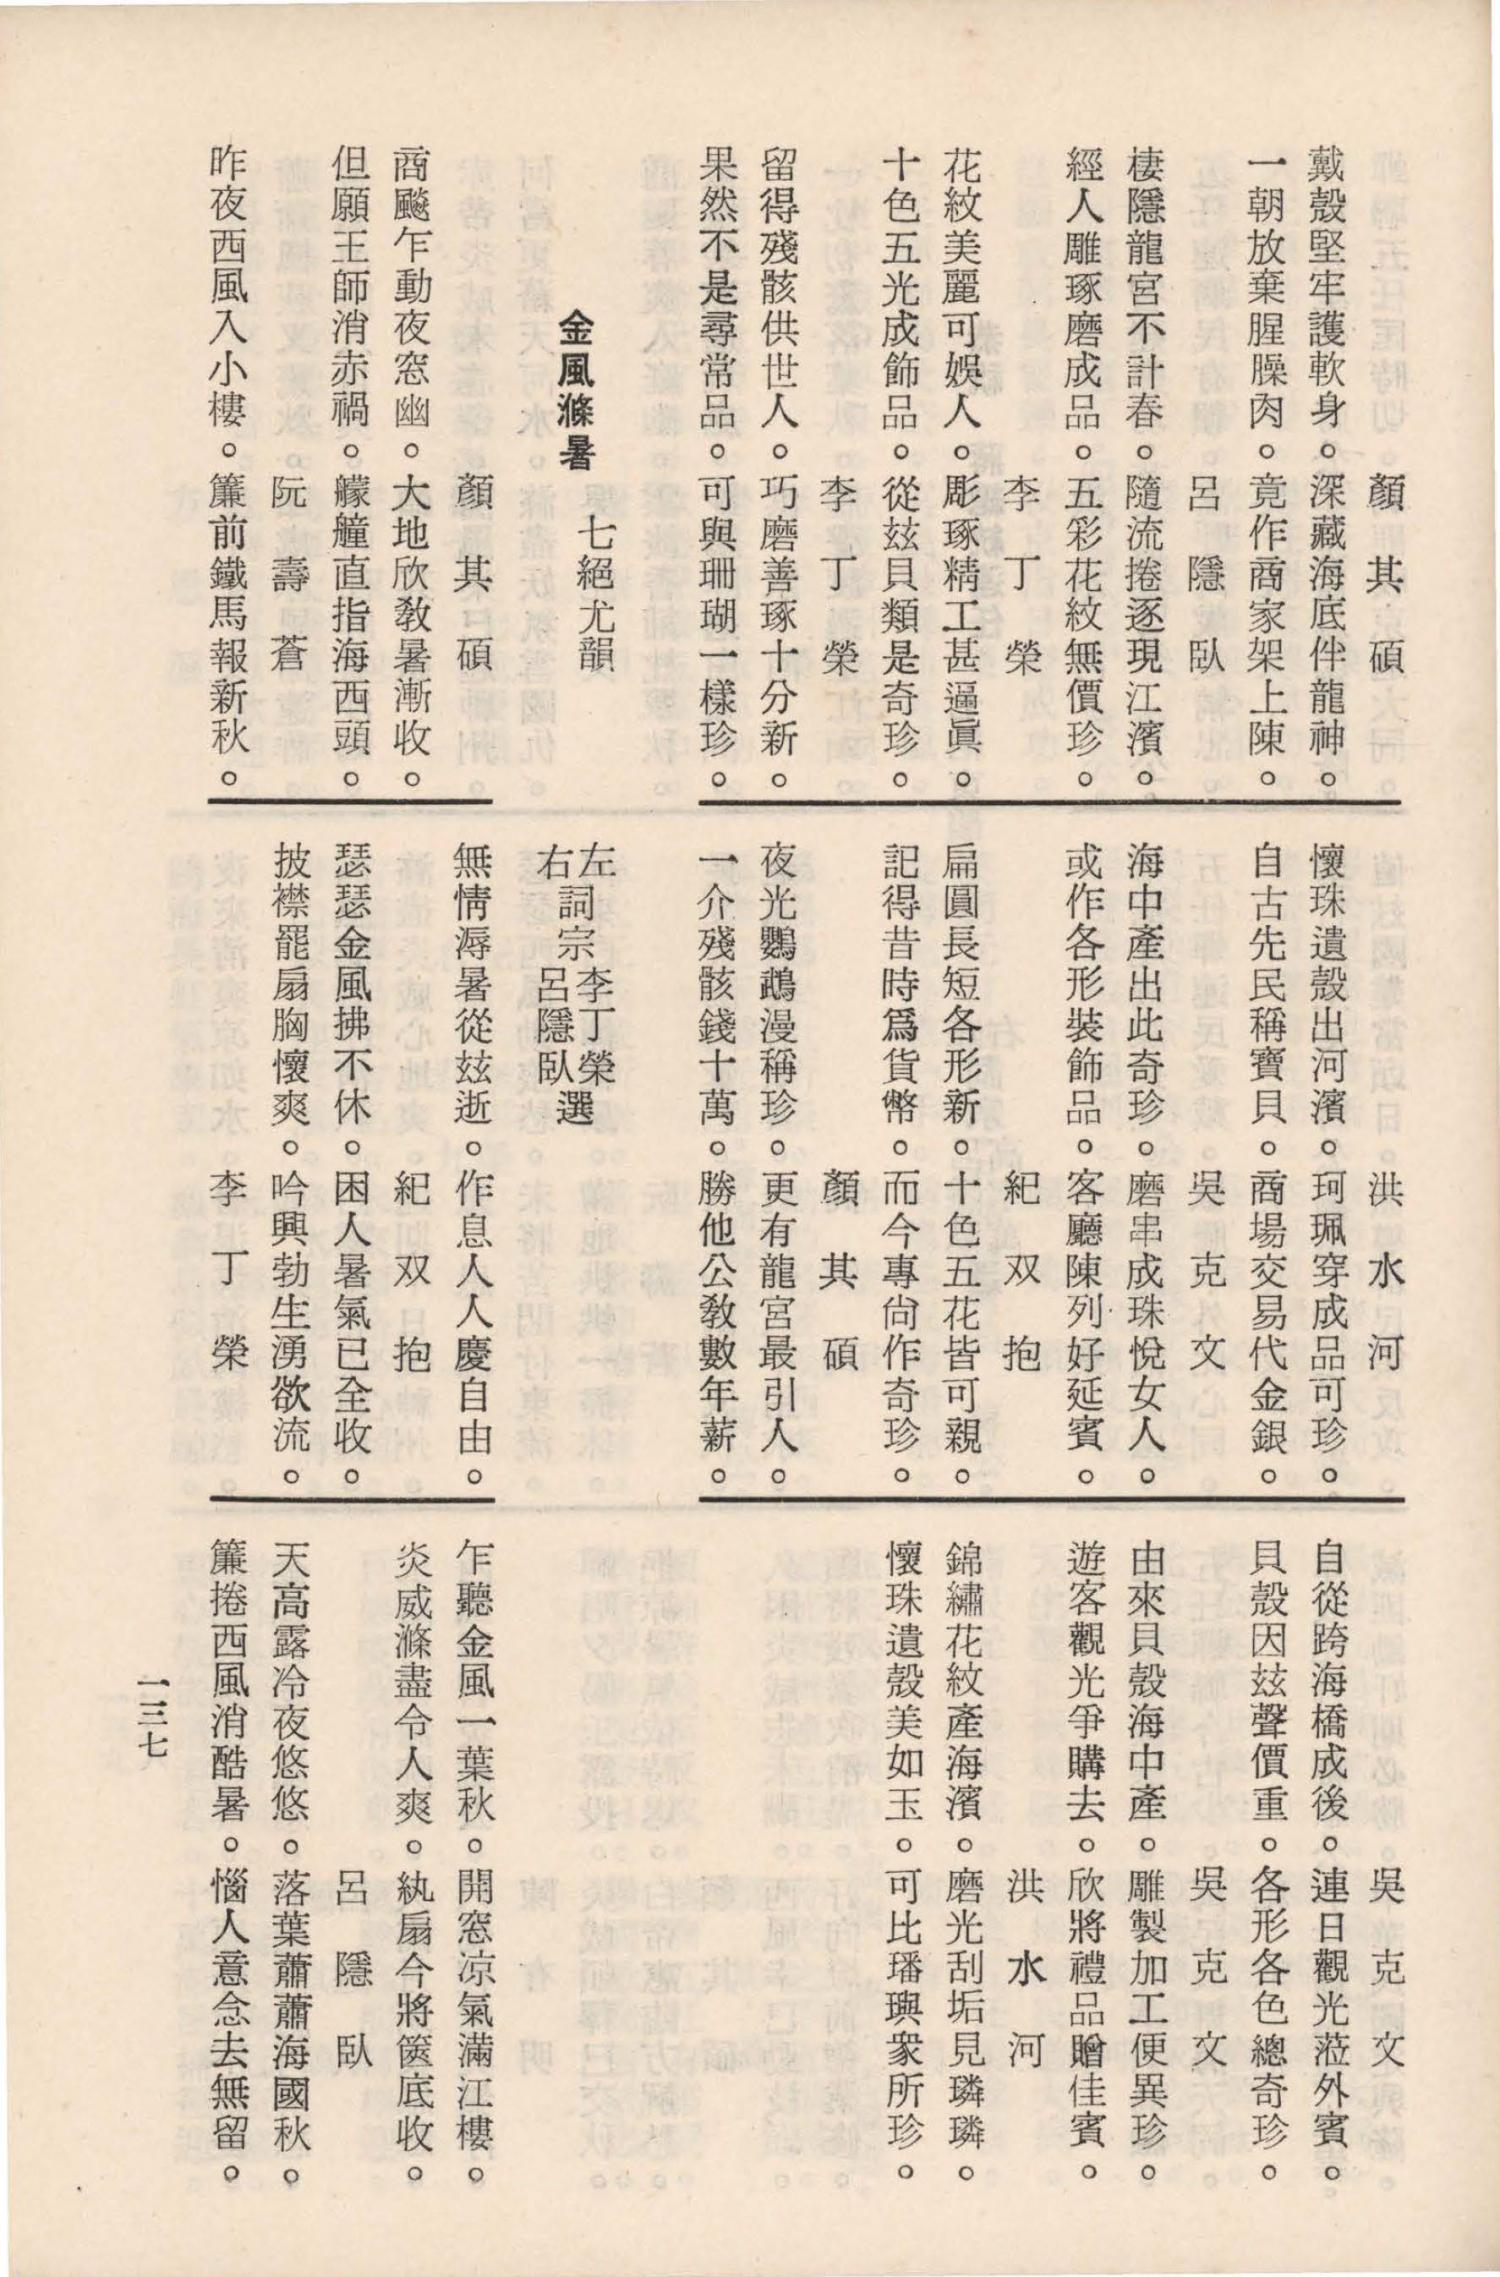 顏其碩
戴殼堅牢護軟身。深藏海底伴龍神。
一朝放棄腥臊肉。竟作商家架上陳。
呂隱臥
棲隱龍宮不計春。隨流捲逐現江濱。
經人雕琢磨成品。五彩花紋無價珍。
李丁榮
花紋美麗可娛人。彫琢精工甚逼眞。
十色五光成飾品。從玆貝類是奇珍。
李丁榮
留得殘骸供世人。巧磨善琢十分新。
果然不是尋常品。可與珊瑚一樣珍。
洪水河
懷珠遺殼出河濱。珂珮穿成品可珍。
自古先民稱寶貝。商場交易代金銀。
吳克文
海中產出此奇珍。磨串成珠悅女人。
或作各形裝飾品。客廳陳列好延賓。
紀双抱
扁圓長短各形新。十色五花皆可親。
記得昔時爲貨幣。而今專尙作奇珍。
顏其碩
夜光鸚鵡漫稱珍。更有龍宮最引人。
一介殘骸錢十萬。勝他公教數年薪。
吳克文
自從跨海橋成後。連日觀光蒞外賓。
貝殼因玆聲價重。各形各色總奇珍。
吳克文
由來貝殼海中產。雕製加工便異珍。
遊客觀光爭購去。欣將禮品贈佳賓。
洪水河
錦繡花紋產海濱。磨光刮垢見璘璘。
懷珠遺殼美如玉。可比璠璵衆所珍。
金風滌暑　七絕尤韻
左詞宗李丁榮選
右詞宗呂隱臥選
顏其碩
商颷乍動夜窓幽。大地欣敎暑漸收。
但願王師消赤禍。艨艟直指海西頭。
阮壽蒼
昨夜西風入小樓。簾前鐵馬報新秋。
無情溽暑從玆逝。作息人人慶自由。
紀双抱
瑟瑟金風拂不休。困人暑氣已全收。
披襟罷扇胸懷爽。吟興勃生湧欲流。
李丁榮
乍聽金風一葉秋。開窓凉氣滿江樓。
炎威滌盡令人爽。紈扇今將篋底收。
呂隱臥
天高露冷夜悠悠。落葉蕭蕭海國秋。
簾捲西風消酷暑。惱人意念去無留。
一三七